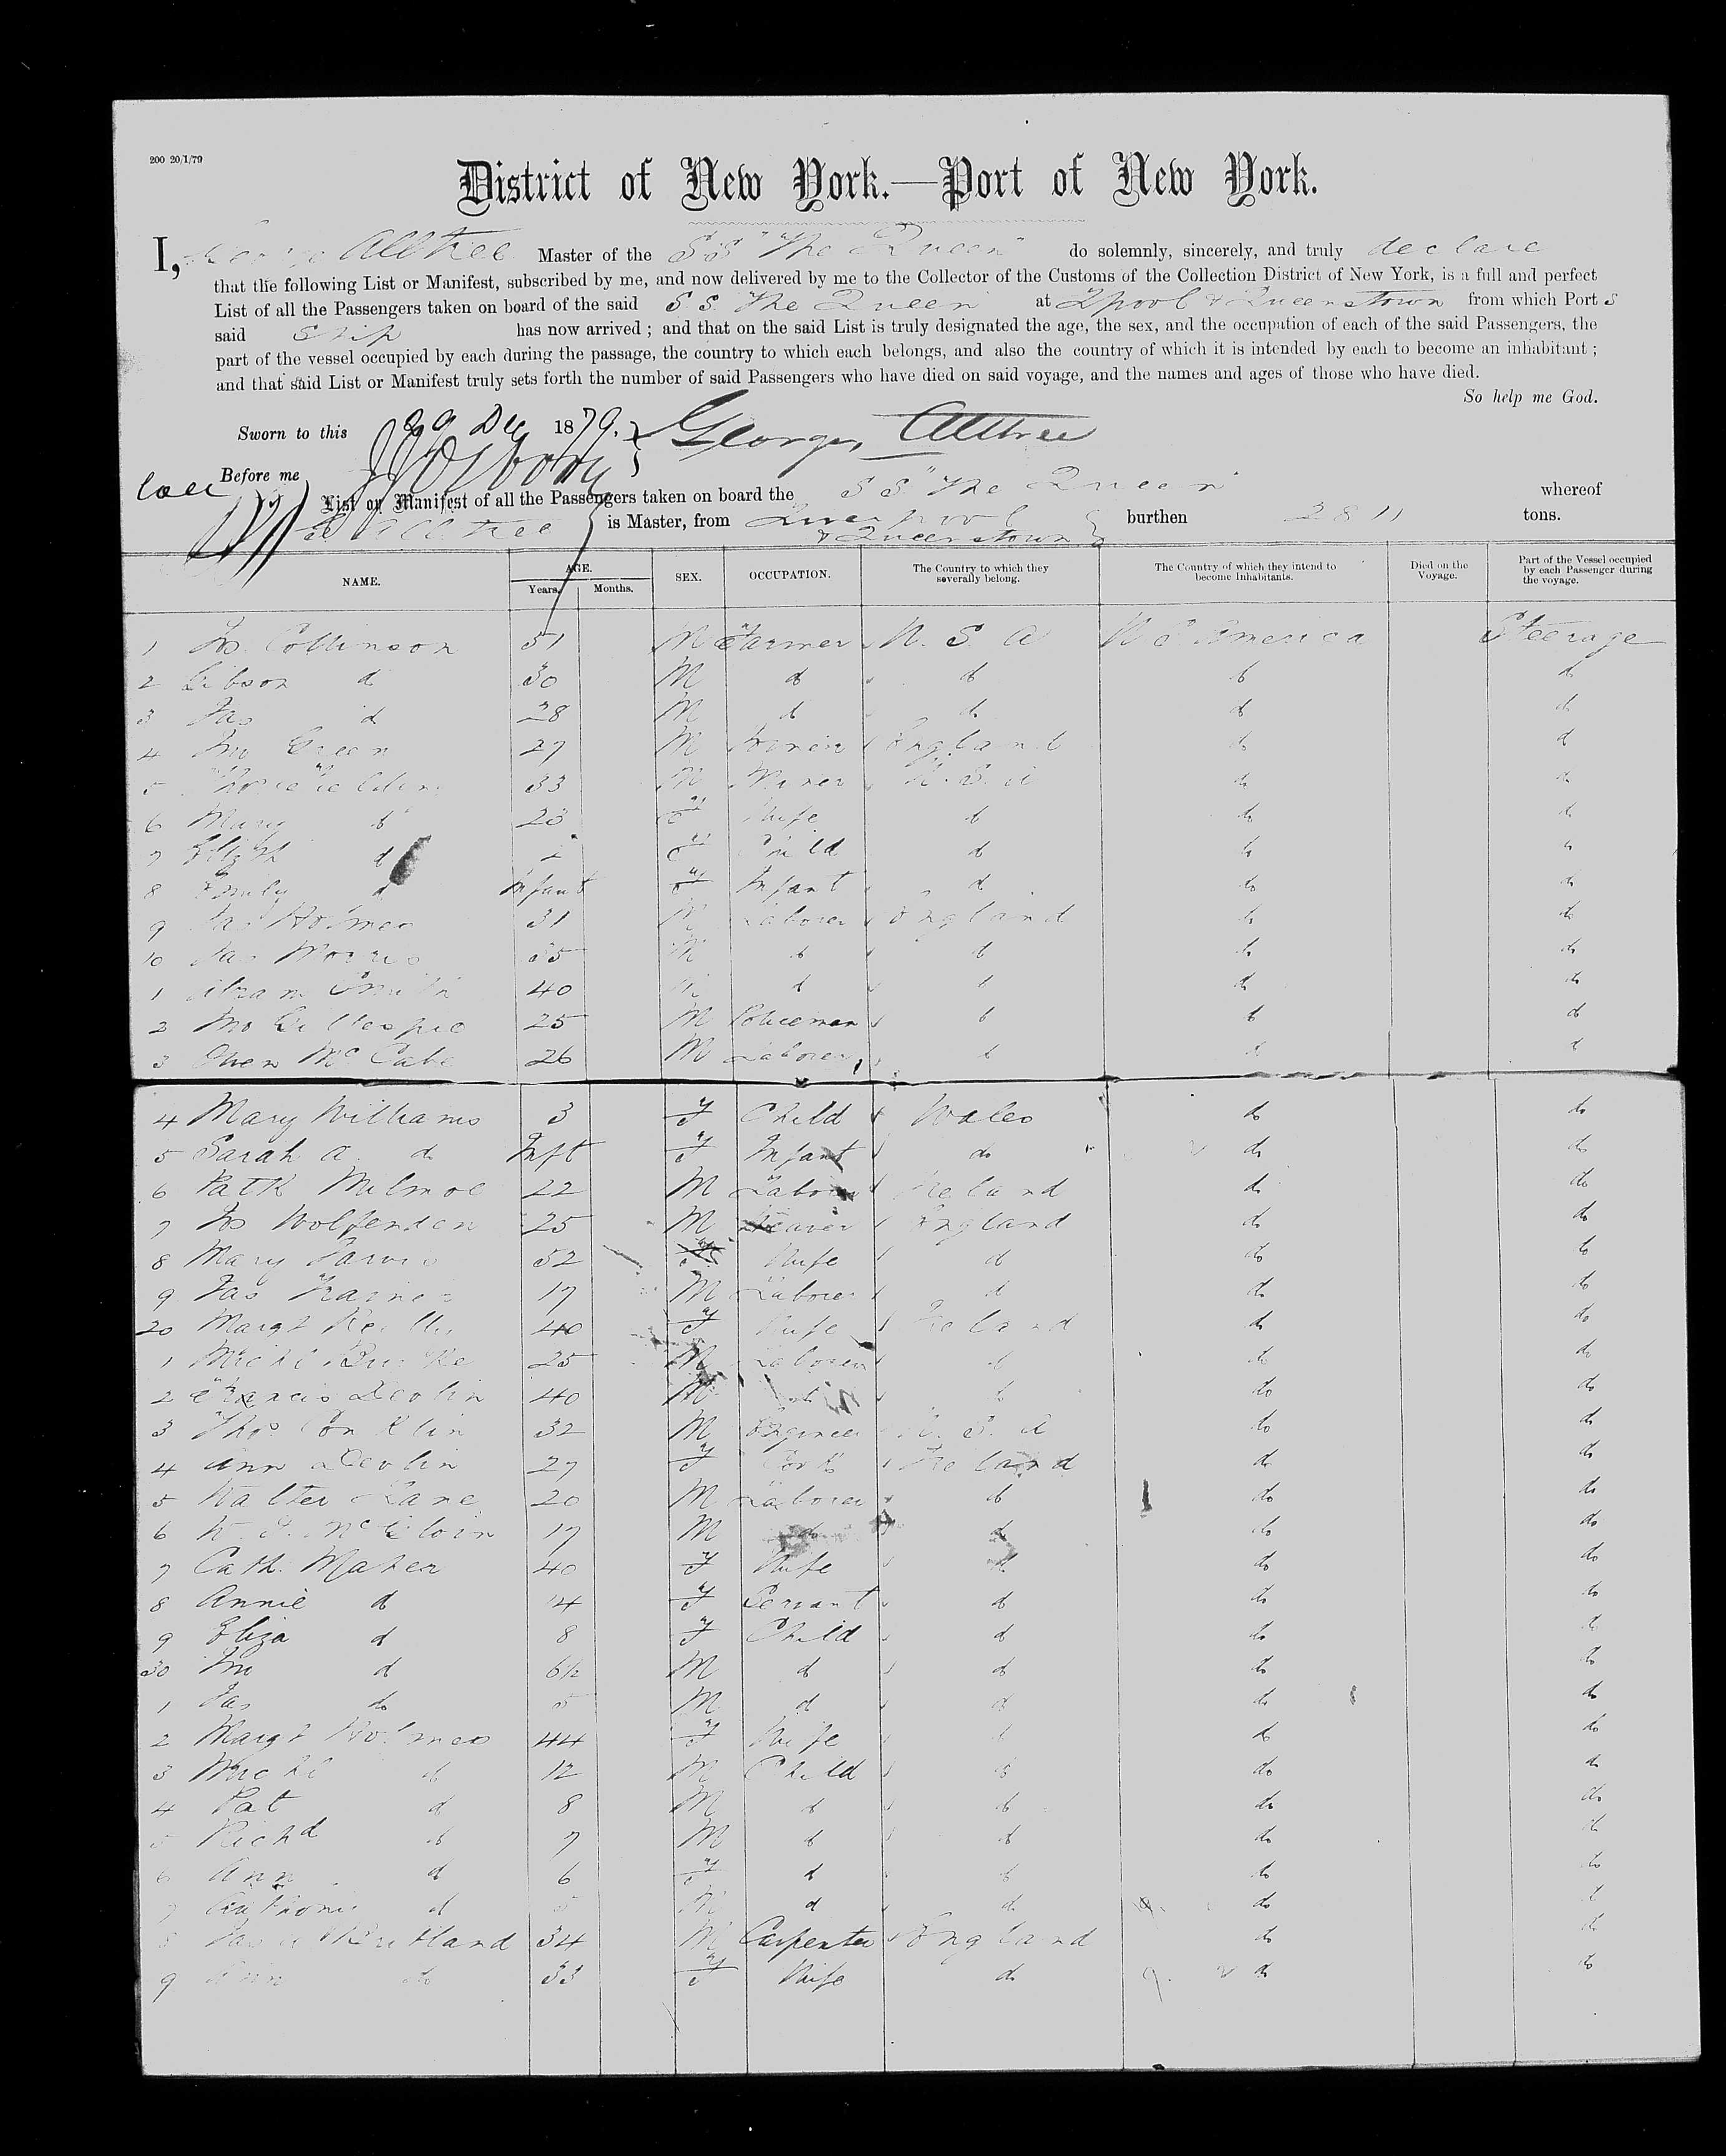 200 20/1/79
District of New York.—Port of New York.
I, George Alltree Master of the SS "The Queen" do solemnly, sincerely, and truly declare
that the following List or Manifest, subscribed by me, and now delivered by me to the Collector of the Customs of the Collection District of New York, is a full and perfect
List of all the Passengers taken on board of the said S.S. The Queen at Lpool & Queenstown from which Port s
said Ship has now arrived ; and that on the said List is truly designated the age, the sex, and the occupation of each of the said Passengers, the
part of the vessel occupied by each during the passage, the country to which each belongs, and also the country of which it is intended by each to become an inhabitant ;
and that said List or Manifest truly sets forth the number of said Passengers who have died on said voyage, and the names and ages of those who have died.
So help me God.
Sworn to this 29 Dec 1879. George Alltree
Before me
List or Manifest of all the Passengers taken on board the SS "The Queen" whereof
G Alltree is Master, from Liverpool & Queenstown burthen 2811 tons.
NAME. AGE. Years. Months. SEX. OCCUPATION. The Country to which they severally belong. The Country of which they intend to become Inhabitants. Died on the Voyage. Part of the Vessel occupied by each Passenger during the voyage.
1 Jos Collinson 51 M Farmer U. S. A U S America Steerage
2 Gibson do 30 M do do do do
3 Jas do 28 M do do do do
4 Jno Green 27 M England do do
5 Thos Fielding 33 M Miner U. S. A do do
6 Mary do 23 F Wife do do do
7 do 2 F Child do do do
8 Emily do Infant F Infant do do do
9 Jas Holmes 31 M Laborer England do do
10 Jas Morris 35 M do do do do
1 Abram Smith 40 M do do do do
2 Jno Gillespie 25 M Policeman do do do
3 Owen McCabe 26 M Laborer do do do
4 Mary Williams 3 F Child Wales do do
5 Sarah A. do Inft F Infant do do do
6 Patk Milmoe 22 M Laborer Ireland do do
7 Jos Wolfenden 25 M Weaver England do do
8 Mary 52 F Wife do do do
9 Jas 17 M Laborer do do do
20 Margt Reilly 40 F Wife Ireland do do
1 Michl Burke 25 M Laborer do do do
2 Francis Devlin 40 M do do do do
3 Thos Conklin 32 M Engineer U. S. A do do
4 Ann Devlin 27 F Cook Ireland do do
5 Walter Kane 20 M Laborer do do do
6 W. J. 17 M do do do do
7 Cath. Maher 40 F Wife do do do
8 Annie do 14 F Servant do do do
9 Eliza do 8 F Child do do do
30 Jno do 6½ M do do do do
1 Jas do 5 M do do do do
2 Margt Holmes 44 F Wife do do do
3 Michl do 12 M Child do do do
4 Pat do 8 M do do do do
5 Richd do 7 M do do do do
6 Ann do 6 F do do do do
7 Anthony do 5 M do do do do
8 34 M Carpenter England do do
9 Ann do 33 F Wife do do do